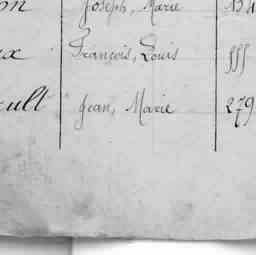 on Joseph, Marie 134
ux François, Louis 555
cult Jean, Marie 279